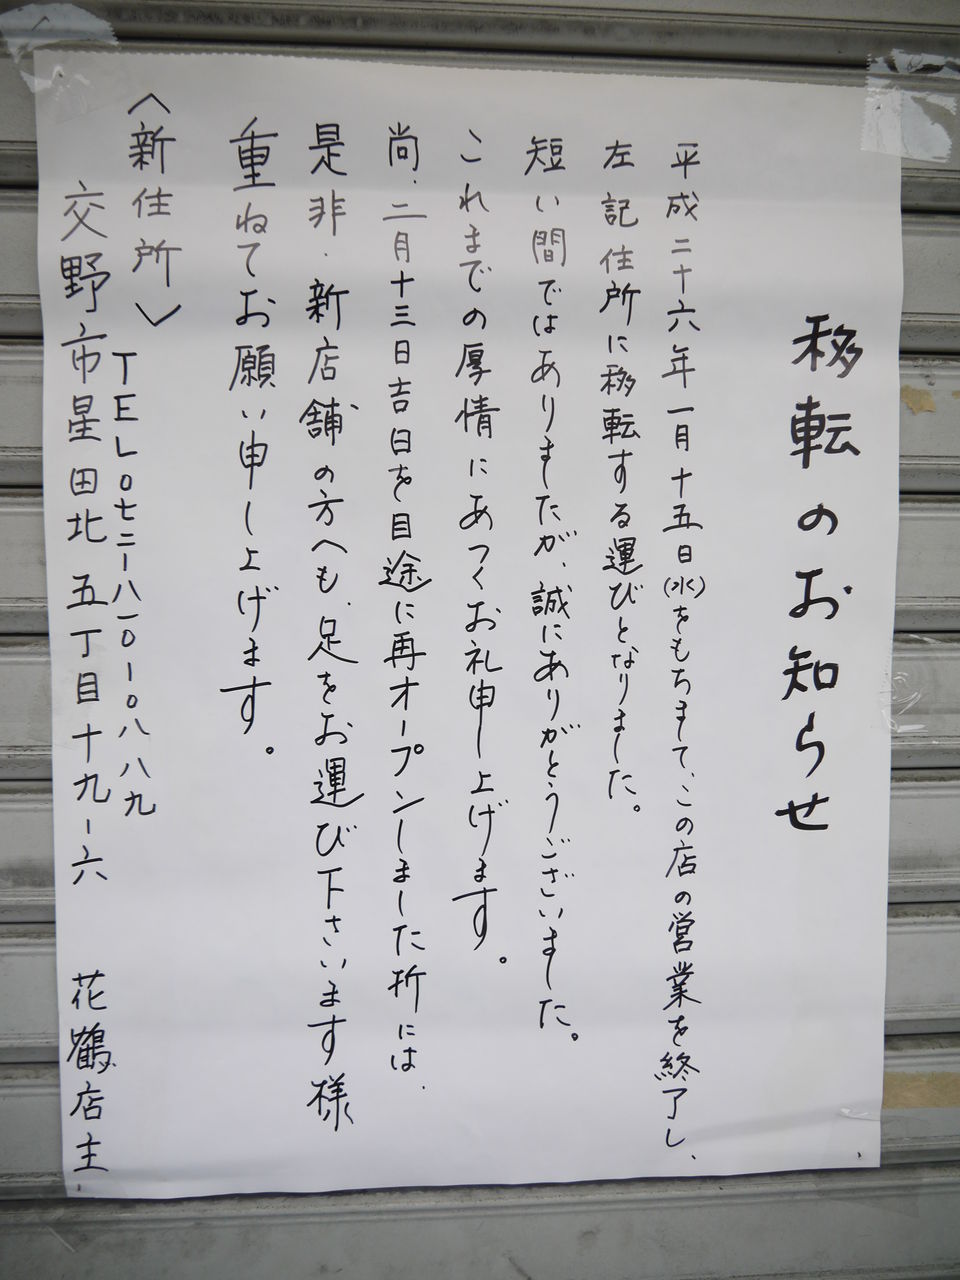 移転のお知らせ
平成二十六年一月十五日(水)をもちまして、この店の営業を終了し、
左記住所に移転する運びとなりました。
短い間ではありましたが、誠にありがとうございました。
これまでの厚情にあつくお礼申し上げます。
尚、二月十三日吉日を目途に再オープンしました折には、
是非、新店舗の方へも、足をお運び下さいます様
重ねてお願い申し上げます。
〈新住所〉
TEL〇七二ー八一〇ー〇八八九
交野市星田北五丁目十九ー六 花鶴店主